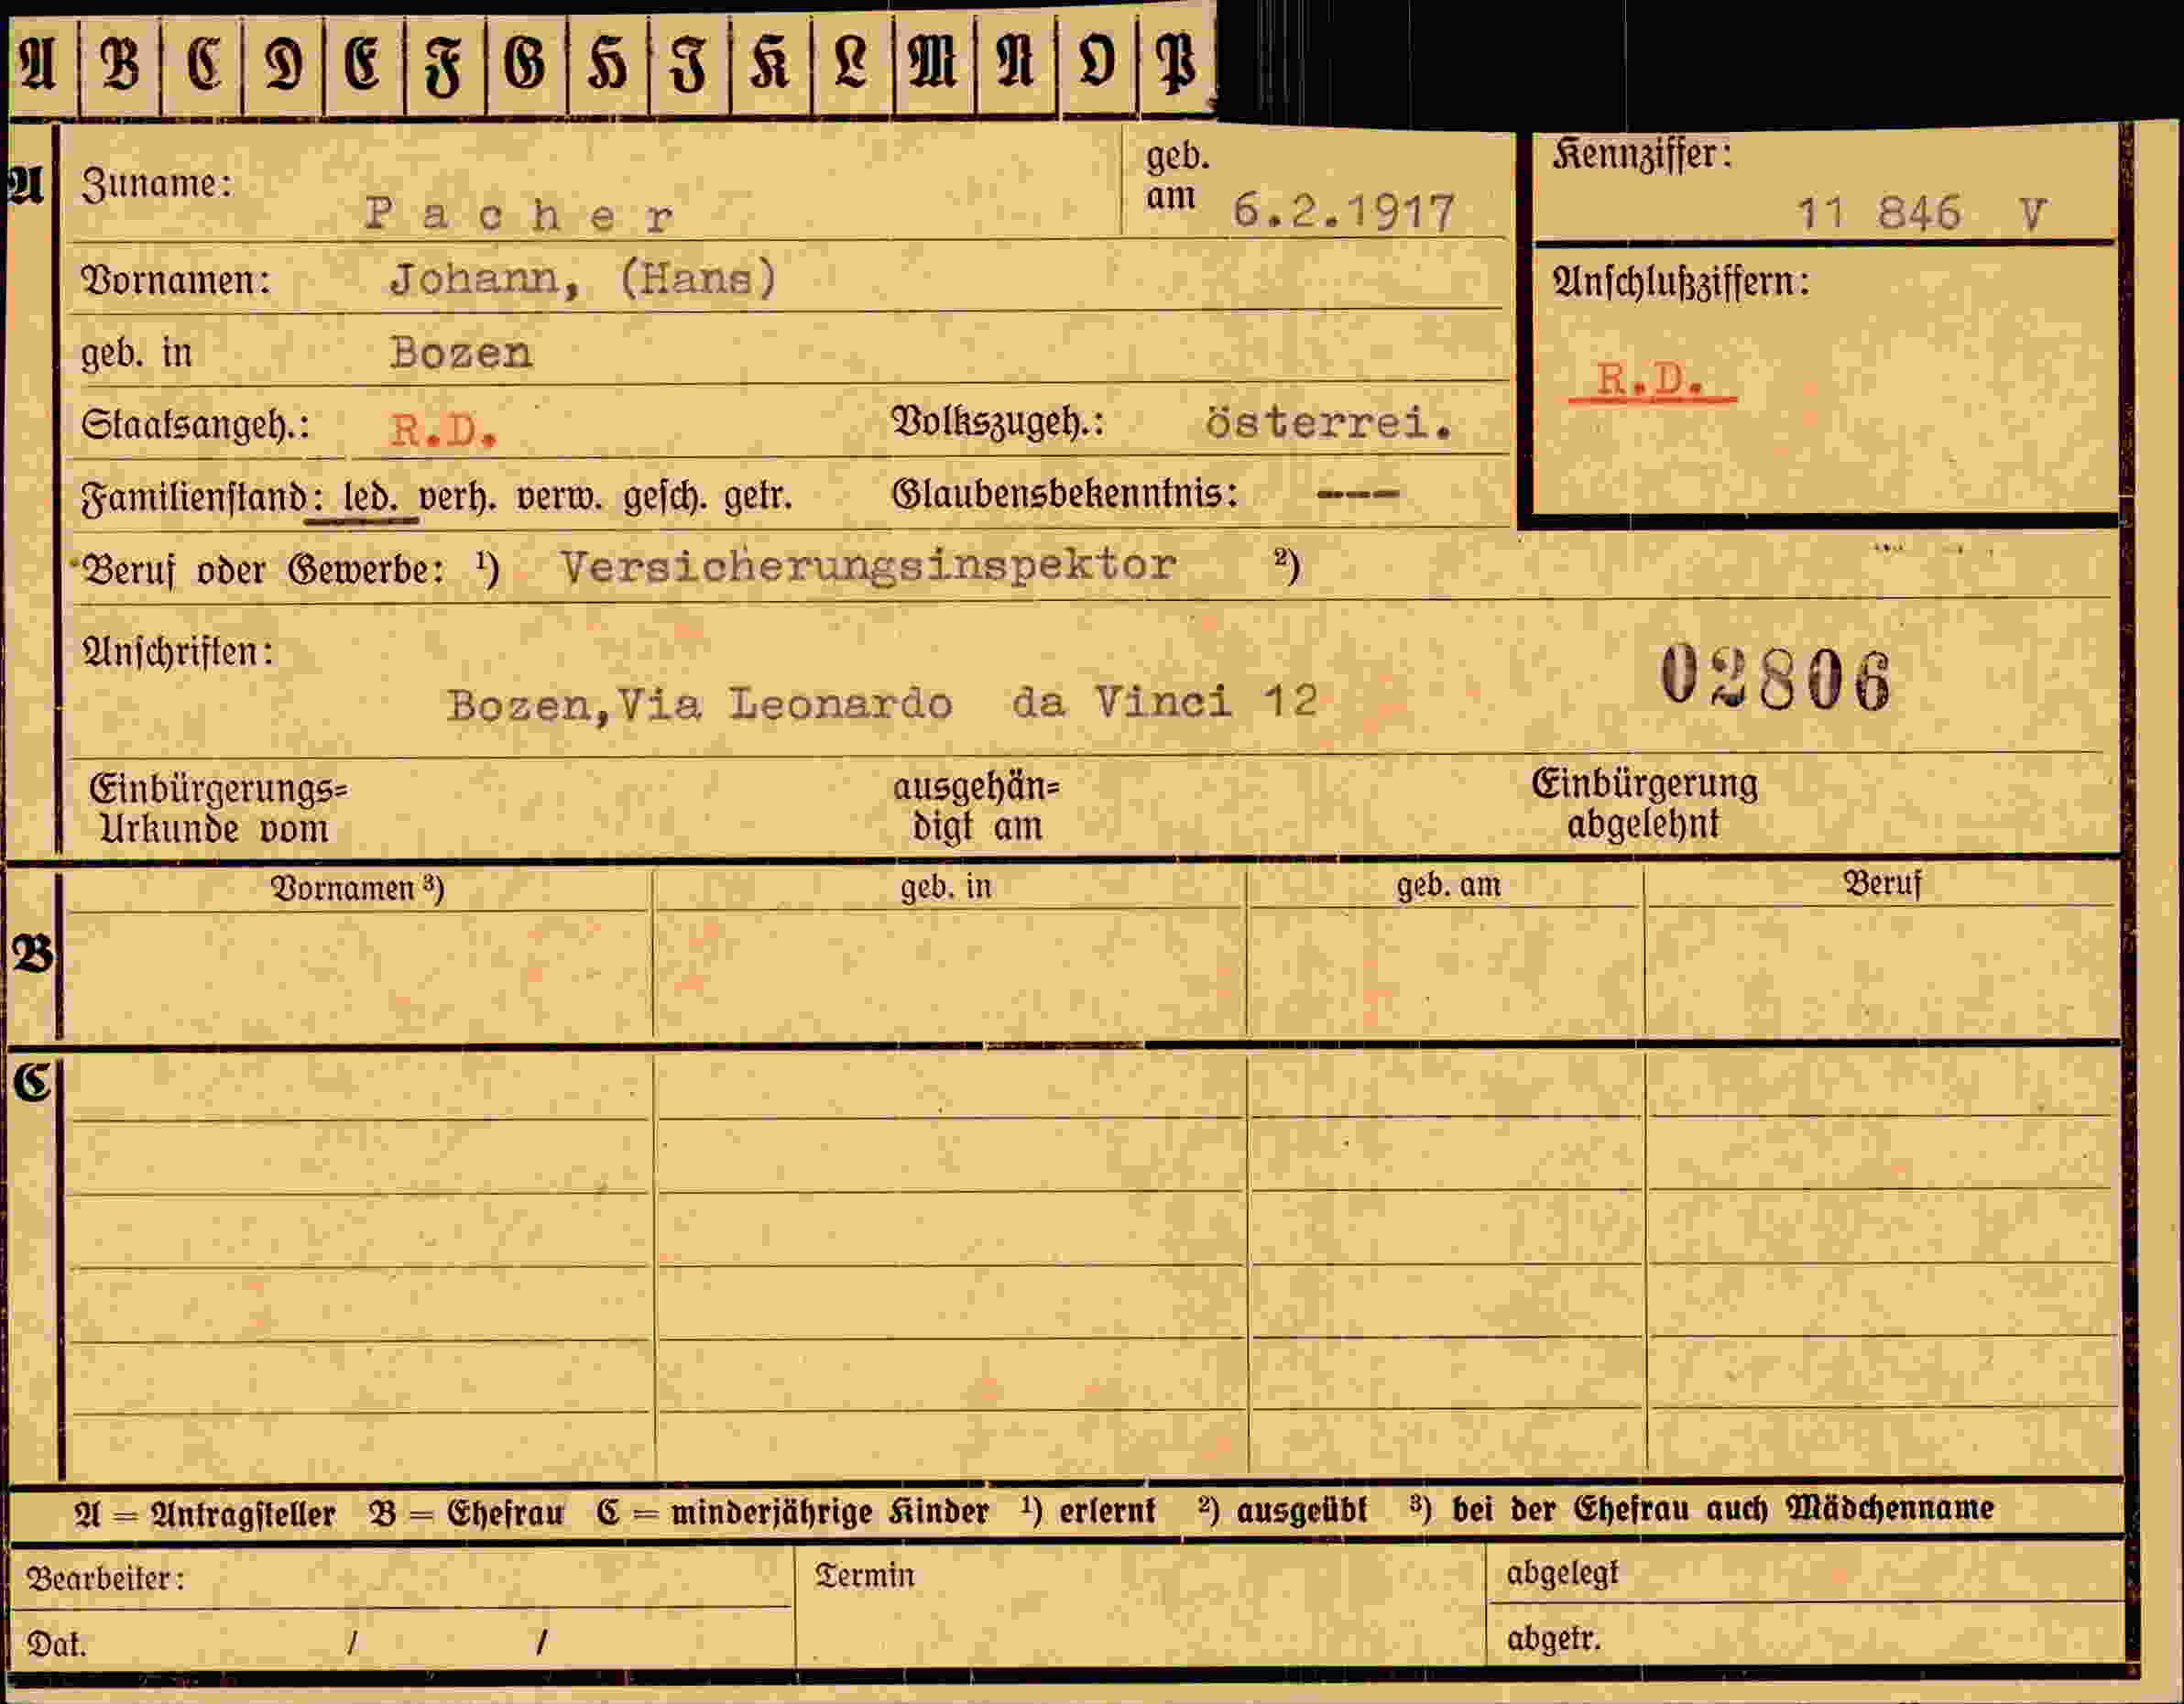 A B C D E F G H J K L M N O P
A Zuname: Pacher geb. am 6.2.1917 Kennziffer: 11 846 V
Vornamen: Johann, (Hans) Anschlußziffern:
geb. in Bozen R.D.
Staatsangeh.: R.D. Volkszugeh.: österrei.
Familienstand: led. verh. verw. gesch. getr. Glaubensbekenntnis: ---
Beruf oder Gewerbe: ¹) Versicherungsinspektor ²)
Anschriften: 02806
Bozen, Via Leonardo da Vinci 12
Einbürgerungs= ausgehän= Einbürgerung
Urkunde vom digt am abgelehnt
Vornamen ³) geb. in geb. am Beruf
B
C
A = Antragsteller B = Ehefrau C = minderjährige Kinder ¹) erlernt ²) ausgeübt ³) bei der Ehefrau auch Mädchenname
Bearbeiter: Termin abgelegt
Dat. / / abgetr.